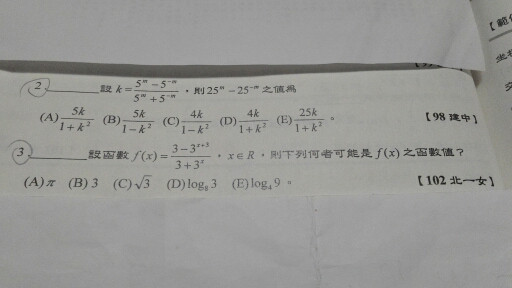 【範
2 設 k = \frac{5^m - 5^{-m}}{5^m + 5^{-m}},則 25^m - 25^{-m} 之值為
(A) \frac{5k}{1+k^2} (B) \frac{5k}{1-k^2} (C) \frac{4k}{1-k^2} (D) \frac{4k}{1+k^2} (E) \frac{25k}{1+k^2}。 【98 建中】
3 設函數 f(x) = \frac{3 - 3^{x+3}}{3 + 3^x},x∈R,則下列何者可能是 f(x) 之函數值?
(A) π (B) 3 (C) √3 (D) log_8 3 (E) log_4 9。 【102 北一女】